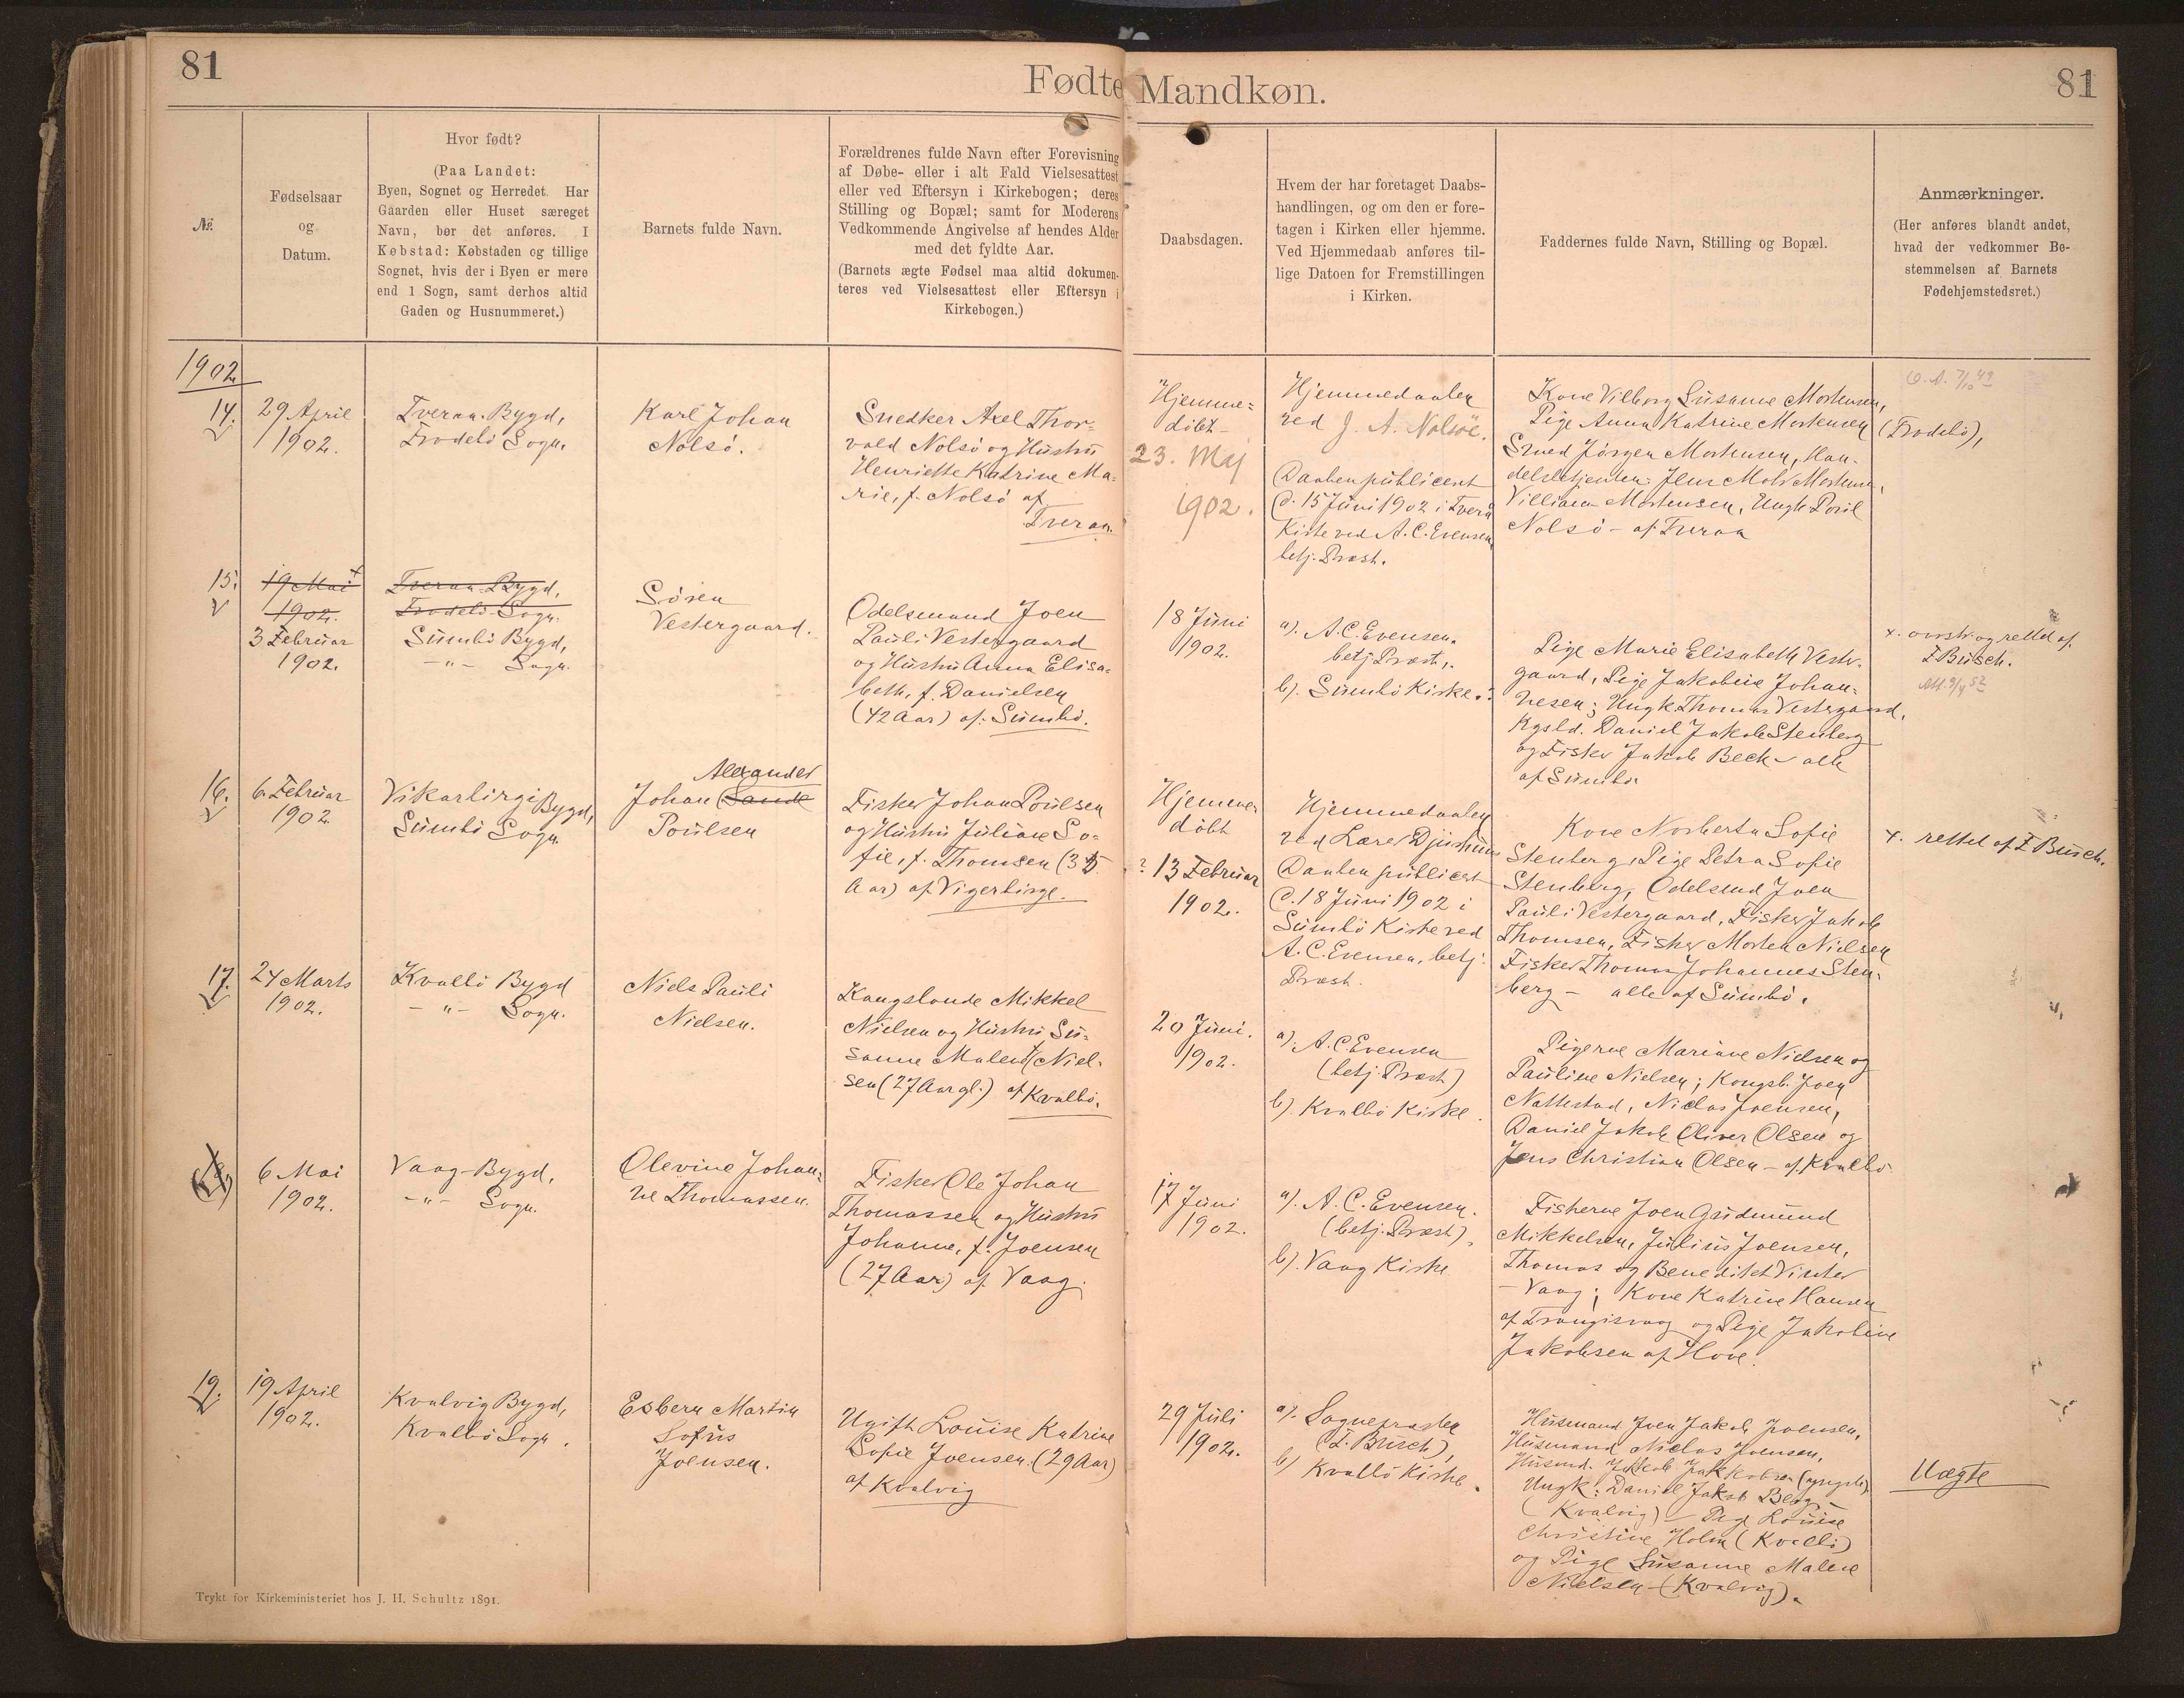 81
Fødte Mandkøn.
81
№.
Fødselsaar
og
Datum.
Hvor født?
(Paa Landet:
Byen, Sognet og Herredet. Har
Gaarden eller Huset særeget
Navn, bør det anføres. I
Købstad: Købstaden og tillige
Sognet, hvis der i Byen er mere
end 1 Sogn, samt derhos altid
Gaden og Husnummeret.)
Barnets fulde Navn.
Forældrenes fulde Navn efter Forevisning
af Døbe- eller i alt Fald Vielsesattest
eller ved Eftersyn i Kirkebogen; deres
Stilling og Bopæl; samt for Moderens
Vedkommende Angivelse af hendes Alder
med det fyldte Aar.
(Barnets ægte Fødsel maa altid dokumen-
teres ved Vielsesattest eller Eftersyn i
Kirkebogen.)
Daabsdagen.
Hvem der har foretaget Daabs-
handlingen, og om den er fore-
tagen i Kirken eller hjemme.
Ved Hjemmedaab anføres til-
lige Datoen for Fremstillingen
i Kirken.
Faddernes fulde Navn, Stilling og Bopæl.
Anmærkninger.
(Her anføres blandt andet,
hvad der vedkommer Be-
stemmelsen af Barnets
Fødehjemstedsret.)
1902
14.
29 April
1902.
Tveraa Bygd,
Frodebö Sogn.
Karl Johan
Nolsö.
Snedker Axel Thor-
vald Nolsö og Hustru
Henriette Katrine Ma-
rie, f. Nolsö af
Tveraa.
Hjemme-
döbt
23. Maj
1902.
Hjemmedaaben
ved J. A. Nolsöe.
Daaben publiceret
d. 15 Juni 1902 i Tverå
Kirke ved A. C. Evensen,
betj. Præst.
Kone Vilborg Susanne Mortensen,
Pige Anna Katrine Mortensen
Smed Jörgen Mortensen, Han-
delsbetjenten Jens Mohr Mortensen,
Villiam Mortensen, Ungk. Poul
Nolsö - af Tveraa
(Frodebö),
15.
19 Mai
1902.
3 Februar
1902.
Tveraa Bygd,
Frodebö Sogn.
Sumbö Bygd,
-"- Sogn.
Sören
Vestergaard.
Odelsmand Joen
Pauli Vestergaard
og Hustru Anna Elisa-
beth, f. Danielsen
(42 Aar) af Sumbö.
18 Juni
1902.
a). A. C. Evensen.
betj. Præst,.
b). Sumbö Kirke.
Pige Marie Elisabeth Vester-
gaard, Pige Jakobine Johan-
nesen; Ungk. Thomas Vestergaard,
Kgsld. Daniel Jakob Stenberg
og Fisker Jakob Bech - alle
af Sumbö
x. overstr. og rettet af
F. Busch.
16.
6. Februar
1902.
Vikarbirgi Bygd,
Sumbö Sogn.
Alexander
Johan Sande
Poulsen
Fisker Johan Poulsen
og Hustru Juliane So-
fie, f. Thomsen (35
Aar) af Vigerbirge.
Hjemme-
döbt
? 13 Februar
1902.
Hjemmedaaben
ved Lærer Djurhuus
Daaben publiceret
d. 18 Juni 1902 i
Sumbö Kirke ved
A. C. Evensen, betj.
Præst.
Kone Norberta Sofie
Stenberg, Pige Petra Sofie
Stenberg, Odelsmd Joen
Pauli Vestergaard, Fisker Jakob
Thomsen, Fisker Morten Nielsen
Fisker Thomas Johannes Sten-
berg - alle af Sumbö.
x. rettet af F. Busch.
17.
24 Marts
1902.
Kvalbö Bygd
-"- Sogn.
Niels Pauli
Nielsen.
Kongsbonde Mikkel
Nielsen og Hustru Su-
sanne Malene f. Niel-
sen (27 Aar gl.) af Kvalbö.
20 Juni.
1902.
a). A. C. Evensen
(betj. Præst)
b). Kvalbö Kirke.
Pigerne Mariane Nielsen og
Pauline Nielsen; Kongsb. Joen
Nattestad, Niclas Joensen,
Daniel Jakob Oliver Olsen og
Jens Christian Olsen - af Kvalbö
6 Mai
1902.
Vaag-Bygd,
-"- Sogn.
Olevine Johan-
ne Thomassen.
Fisker Ole Johan
Thomassen og Hustru
Johanne, f. Joensen
(27 Aar) af Vaag.
17 Juni
1902.
a). A. C. Evensen.
(betj. Præst).
b). Vaag Kirke
Fiskerne Joen Gudmund
Mikkelsen, Julius Joensen,
Thomas og Benedikt Vinter
- Vaag; Kone Katrine Hansen
af Trangisvaag og Pige Jakobine
Jakobsen af Hove.
19.
19 April
1902.
Kvalvig Bygd,
Kvalbö Sogn.
Esbern Martin
Sofus
Joensen.
Ugift Louise Katrine
Sofie Joensen (29 Aar)
af Kvalvig
29 Juli
1902.
a). Sognepræsten
(F. Busch),
b) Kvalbö Kirke.
Husmand Joen Jakob Joensen,
Husmand Niclas Joensen,
Husmd. Jakob Jakobsen
Ungk: Daniel Jakob Berg
(Kvalvig) - Pige Louise
Christine Holm (Kvalbö)
og Pige Susanne Malene
Nielsen - (Kvalvig).
Uægte
Trykt for Kirkeministeriet hos J. H. Schultz 1891.